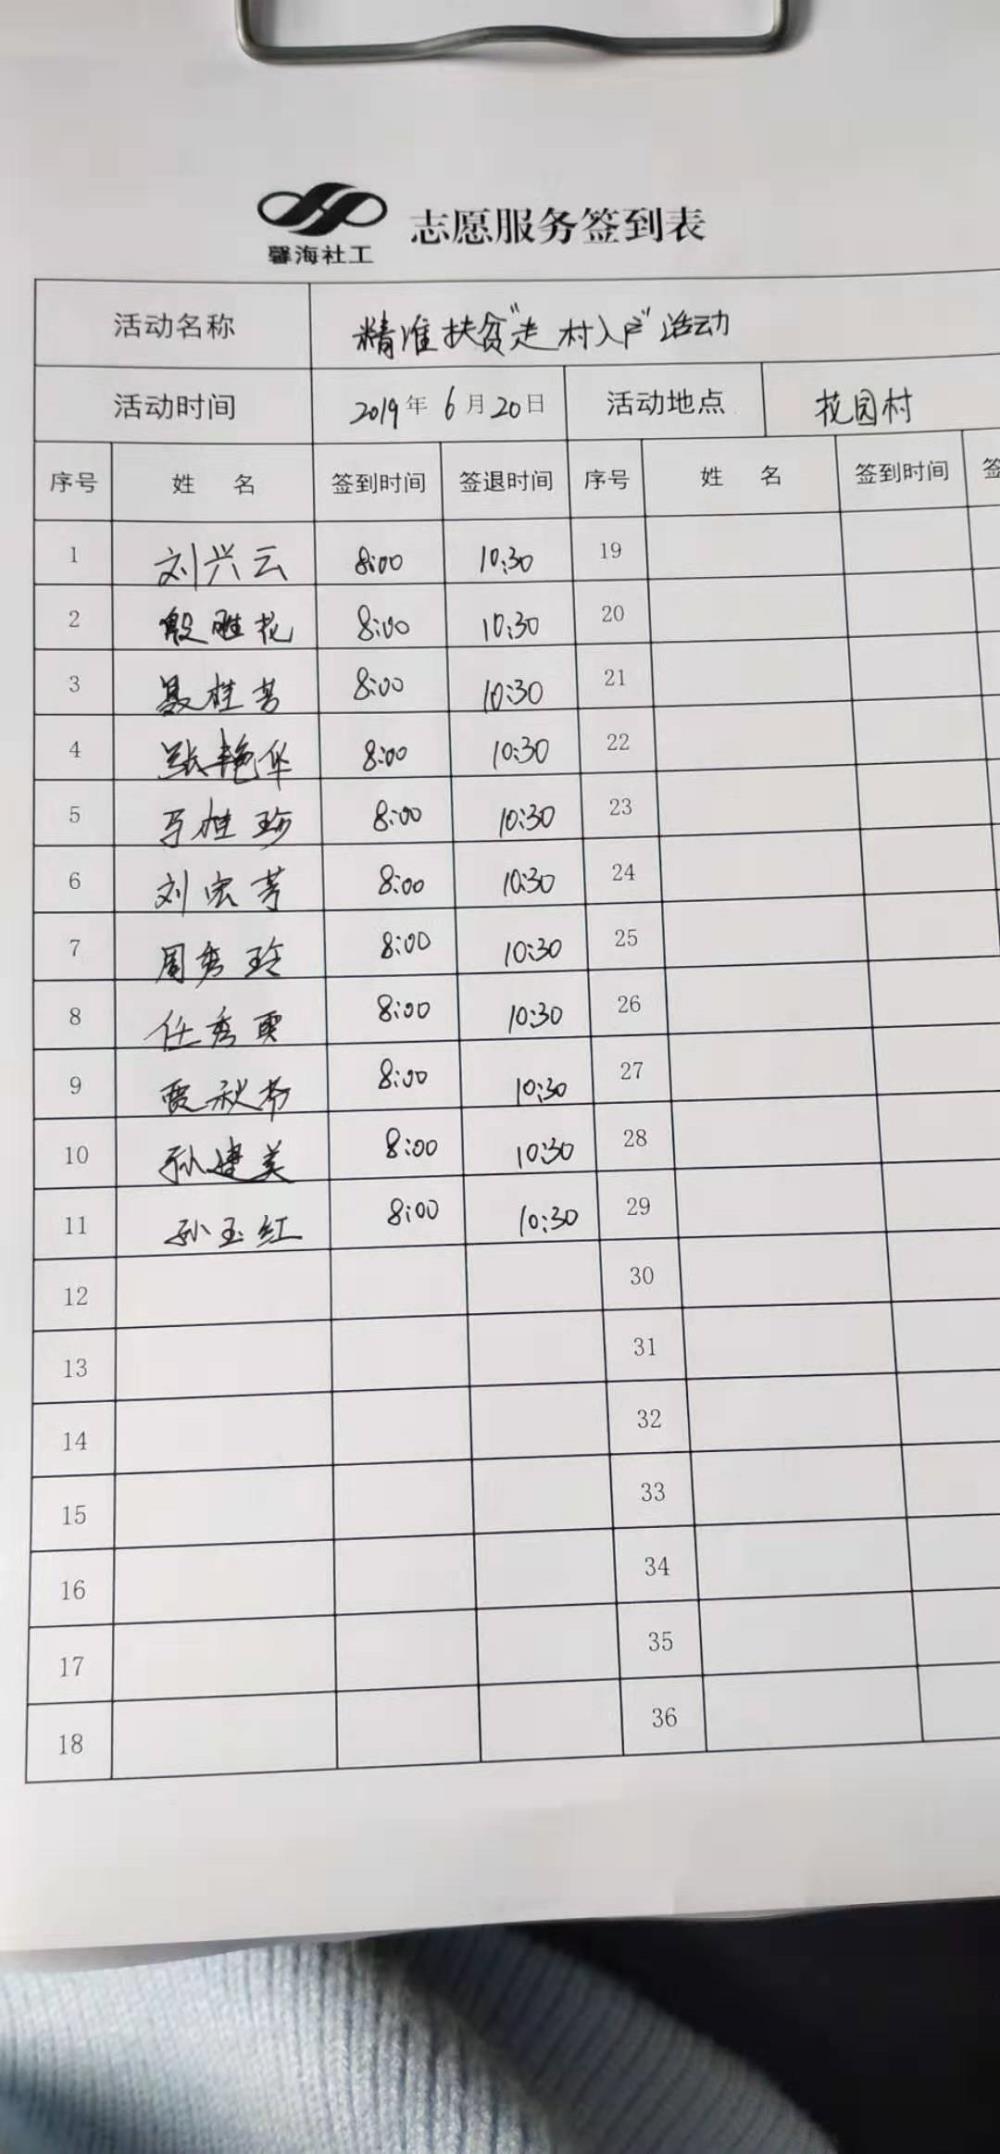 馨海社工
志愿服务签到表
活动名称 精准扶贫"走村入户"活动
活动时间 2019年6月20日 活动地点 花园村
序号 姓 名 签到时间 签退时间 序号 姓 名 签到时间 签
1 刘兴云 8:00 10:30 19
2 殷胜花 8:00 10:30 20
3 聂桂芳 8:00 10:30 21
4 张艳华 8:00 10:30 22
5 8:00 10:30 23
6 刘宏芳 8:00 10:30 24
7 周秀玲 8:00 10:30 25
8 任秀 8:00 10:30 26
9 贾秋芬 8:00 10:30 27
10 孙建美 8:00 10:30 28
11 孙玉红 8:00 10:30 29
12 30
13 31
14 32
15 33
16 34
17 35
18 36